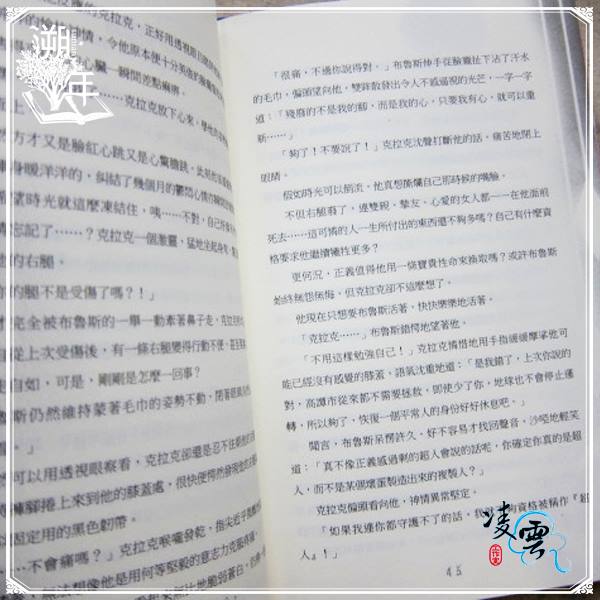 溯年
克拉克，正好用透視眼
情，令他原本便十分美
心臟一瞬間差點麻痺
……克拉克放下心來，
方才又是臉紅心跳又是心驚膽跳，
身暖洋洋的，糾結了幾個月的
望時光就這麼凍結住，咦……不對，自己
忘記了……？克拉克一個激靈，猛地坐起身
的右腿。
的腿不是受傷了嗎？！」
完全被布魯斯的一舉一動牽著鼻子走，克拉克
從上次受傷後，有一條右腿變得行動不便，甚至
自如，可是，剛剛是怎麼一回事？
斯仍然維持蒙著毛巾的姿勢不動，閉著眼
。」
可以用透視眼察看，克拉克卻還是忍不住
褲腳捲上來到他的膝蓋處，很快便愕然發現他的
固定用的黑色韌帶。
不會痛嗎？」克拉克喉嚨發乾，指尖近乎
想像他是用何等堅毅的意志力克服疼痛，
「很痛，不過你說得對。」布魯斯伸手從臉龐扯下沾了汗水
的毛巾，偏頭望向他，雙眸散發出令人不敢逼視的光芒，一字一字
道：「殘廢的不是我的腳，而是我的心，只要有心，就可以重
新……」
「夠了！不要說了！」克拉克沈聲打斷他的話，痛苦地閉上
眼睛。
假如時光可以倒流，他真想撕爛自己那時候的嘴臉。
不但右腿瘸了，連雙親、摯友、心愛的女人都……在他面前
死去……這可憐的人一生所付出的東西還不夠多嗎？自己有什麼資
格要求他繼續犧牲更多？
更何況，正義值得他用一條寶貴性命來換取嗎？或許布魯斯
始終無怨無悔，但克拉克卻不這麼想了。
他現在只想要布魯斯活著，快快樂樂地活著。
「克拉克……」布魯斯錯愕地望著他。
「不用這樣勉強自己！」克拉克憐惜地用手指緩緩摩挲他可
能已經沒有感覺的膝蓋，語氣沈重地道：「是我錯了，上次你說的
對，高譚市從來都不需要拯救，即使少了你，地球也不會停止運
轉，所以夠了，恢復一個平常人的身份好好休息吧。」
聞言，布魯斯呆愕許久，好不容易才找回聲音，沙啞地輕笑
道：「真不像正義感過剩的超人會說的話呢，你確定你真的是超
人，而不是某個壞蛋製造出來的複製人？」
克拉克偏頭看向他，神情異常堅定。
「如果我連你都守護不了的話，我
夠資格被稱作『超
人』！」
45
凌雲